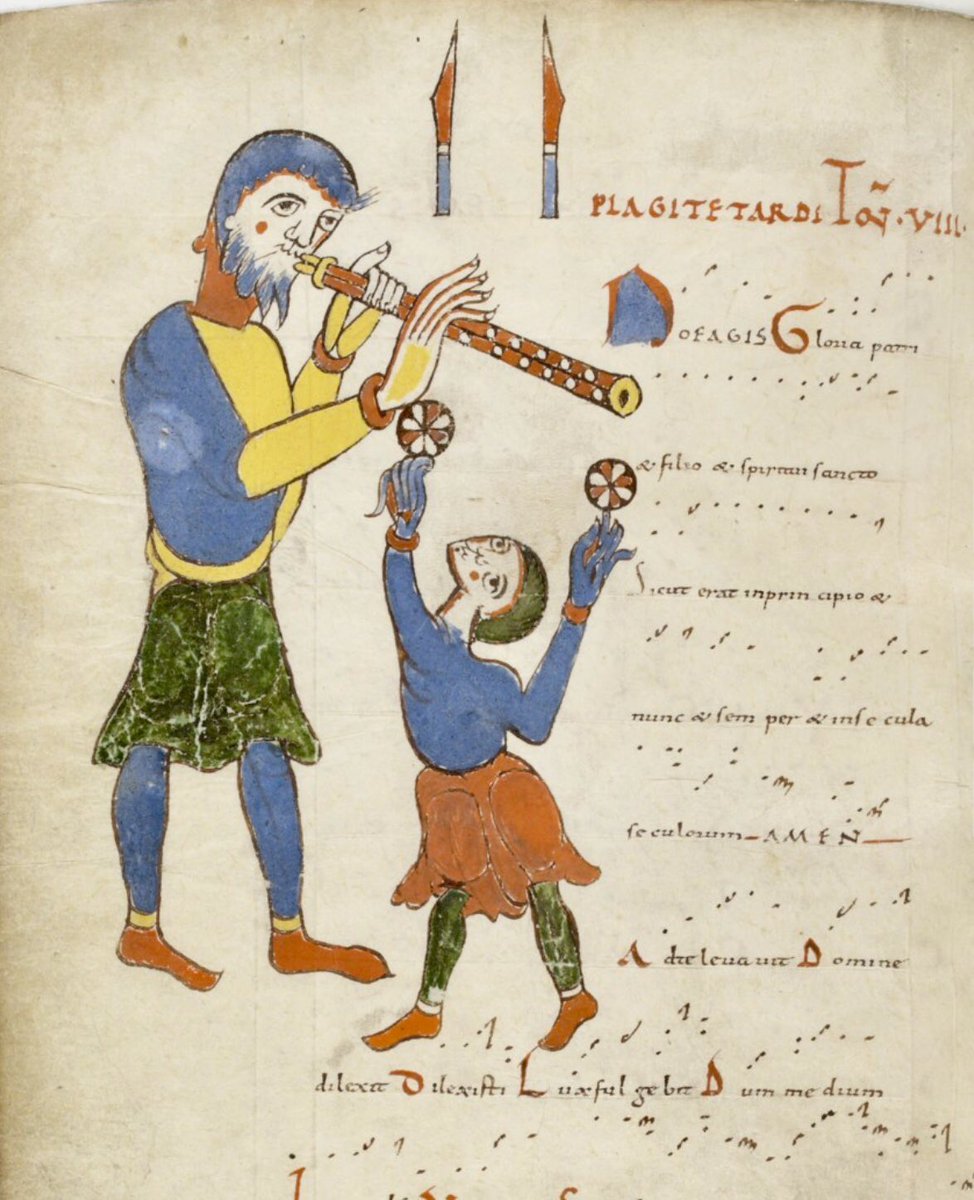 PLAGI TETARDI Toñ · VIII ·
NOEAGIS Gloria patri
& filio & spiritui sancto
Sicut erat in prin cipio &
nunc & sem per & in se cula
se culorum AMEN
Ad te levavit Domine
dilexit Dilexisti Lux ful ge bit Dum me dium